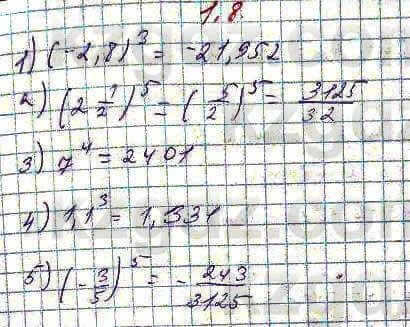 1.8.
1) (-2,8)³ = -21,952
2) (2 1/2)⁵ = (5/2)⁵ = 3125/32
3) 7⁴ = 2401
4) 1,1³ = 1,331
5) (-3/5)⁵ = - 243/3125